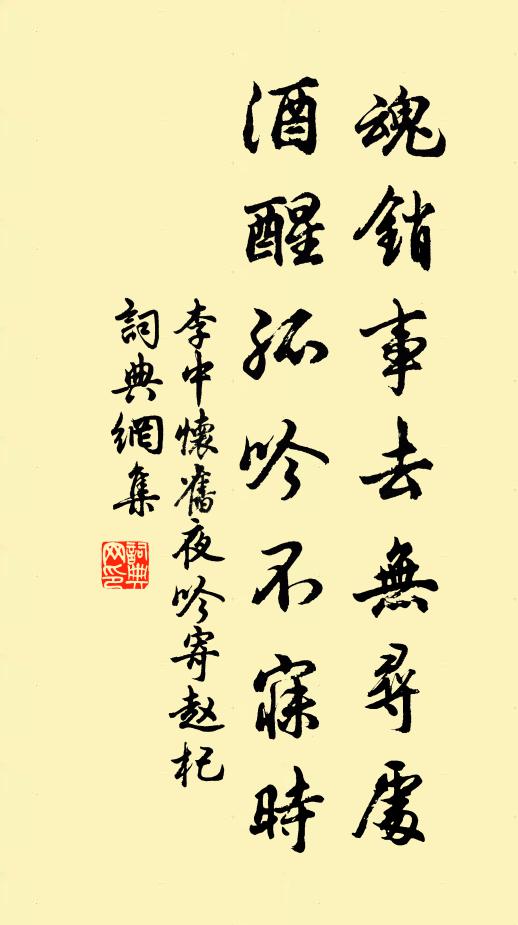 魂銷事去無尋處
酒醒孤吟不寐時
李中懷舊夜吟寄趙杞
詞典網集
詞典
网印